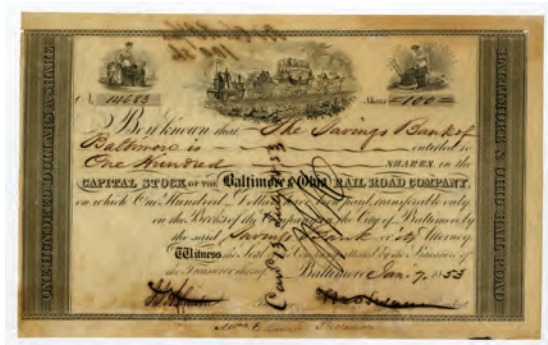 ONE HUNDRED DOLLARS A SHARE
BALTIMORE & OHIO RAIL ROAD
Shares =100=
Be it known that The Savings Bank of
Baltimore is entitled to
One Hundred SHARES in the
CAPITAL STOCK OF THE Baltimore & Ohio RAIL ROAD COMPANY,
on which One Hundred Dollars have been paid, transferable only
on the Books of the Company in the City of Baltimore, by
the said Savings Bank or its Attorney
Witness the Seal of the Company attested by the Treasurer
the Treasurer thereof Baltimore Jan. 7. 1853